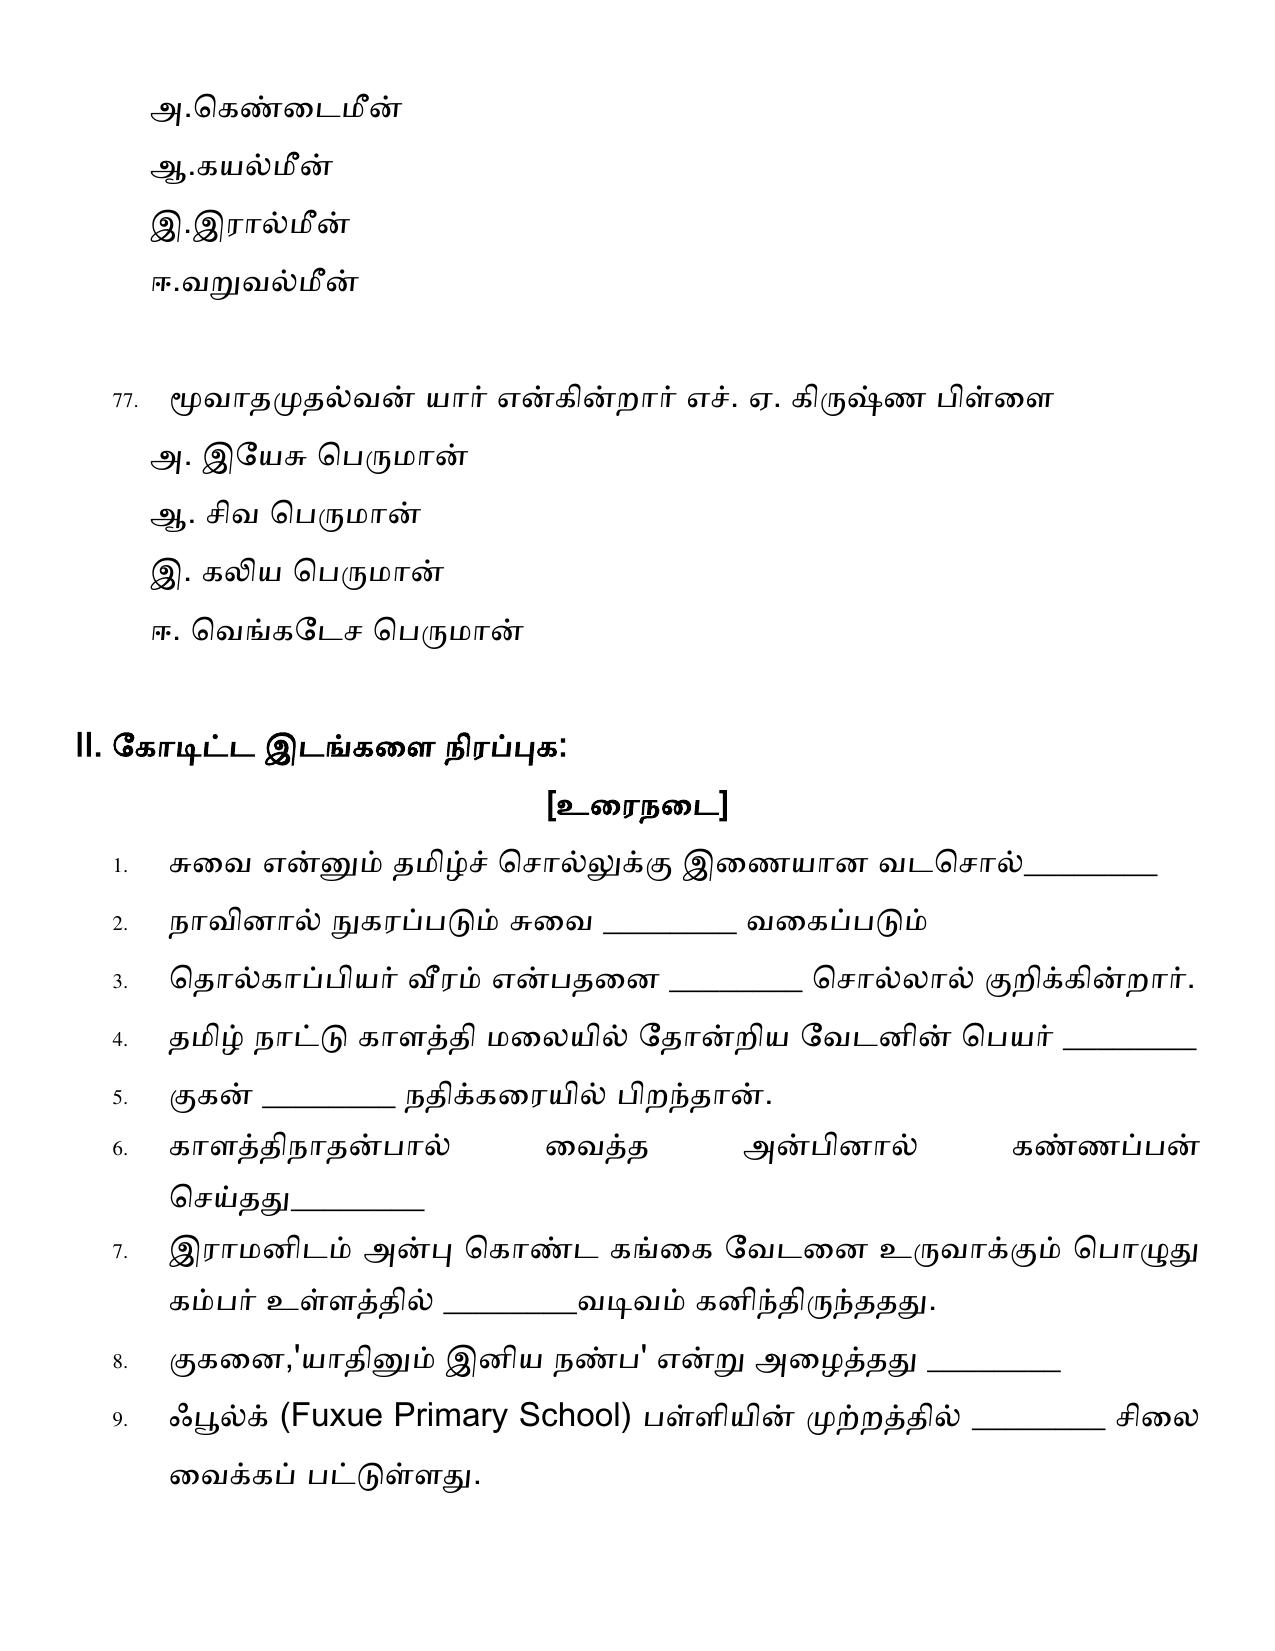 அ.கெண்டைமீன்
ஆ.கயல்மீன்
இ.இரால்மீன்
ஈ.வறுவல்மீன்
77. மூவாதமுதல்வன் யார் என்கின்றார் எச். ஏ. கிருஷ்ண பிள்ளை
அ. இயேசு பெருமான்
ஆ. சிவ பெருமான்
இ. கலிய பெருமான்
ஈ. வெங்கடேச பெருமான்
II. கோடிட்ட இடங்களை நிரப்புக:
[உரைநடை]
1. சுவை என்னும் தமிழ்ச் சொல்லுக்கு இணையான வடசொல்________
2. நாவினால் நுகரப்படும் சுவை ________ வகைப்படும்
3. தொல்காப்பியர் வீரம் என்பதனை ________ சொல்லால் குறிக்கின்றார்.
4. தமிழ் நாட்டு காளத்தி மலையில் தோன்றிய வேடனின் பெயர் ________
5. குகன் ________ நதிக்கரையில் பிறந்தான்.
6. காளத்திநாதன்பால் வைத்த அன்பினால் கண்ணப்பன்
செய்தது________
7. இராமனிடம் அன்பு கொண்ட கங்கை வேடனை உருவாக்கும் பொழுது
கம்பர் உள்ளத்தில் ________வடிவம் கனிந்திருந்ததது.
8. குகனை,'யாதினும் இனிய நண்ப' என்று அழைத்தது ________
9. ஃபூல்க் (Fuxue Primary School) பள்ளியின் முற்றத்தில் ________ சிலை
வைக்கப் பட்டுள்ளது.